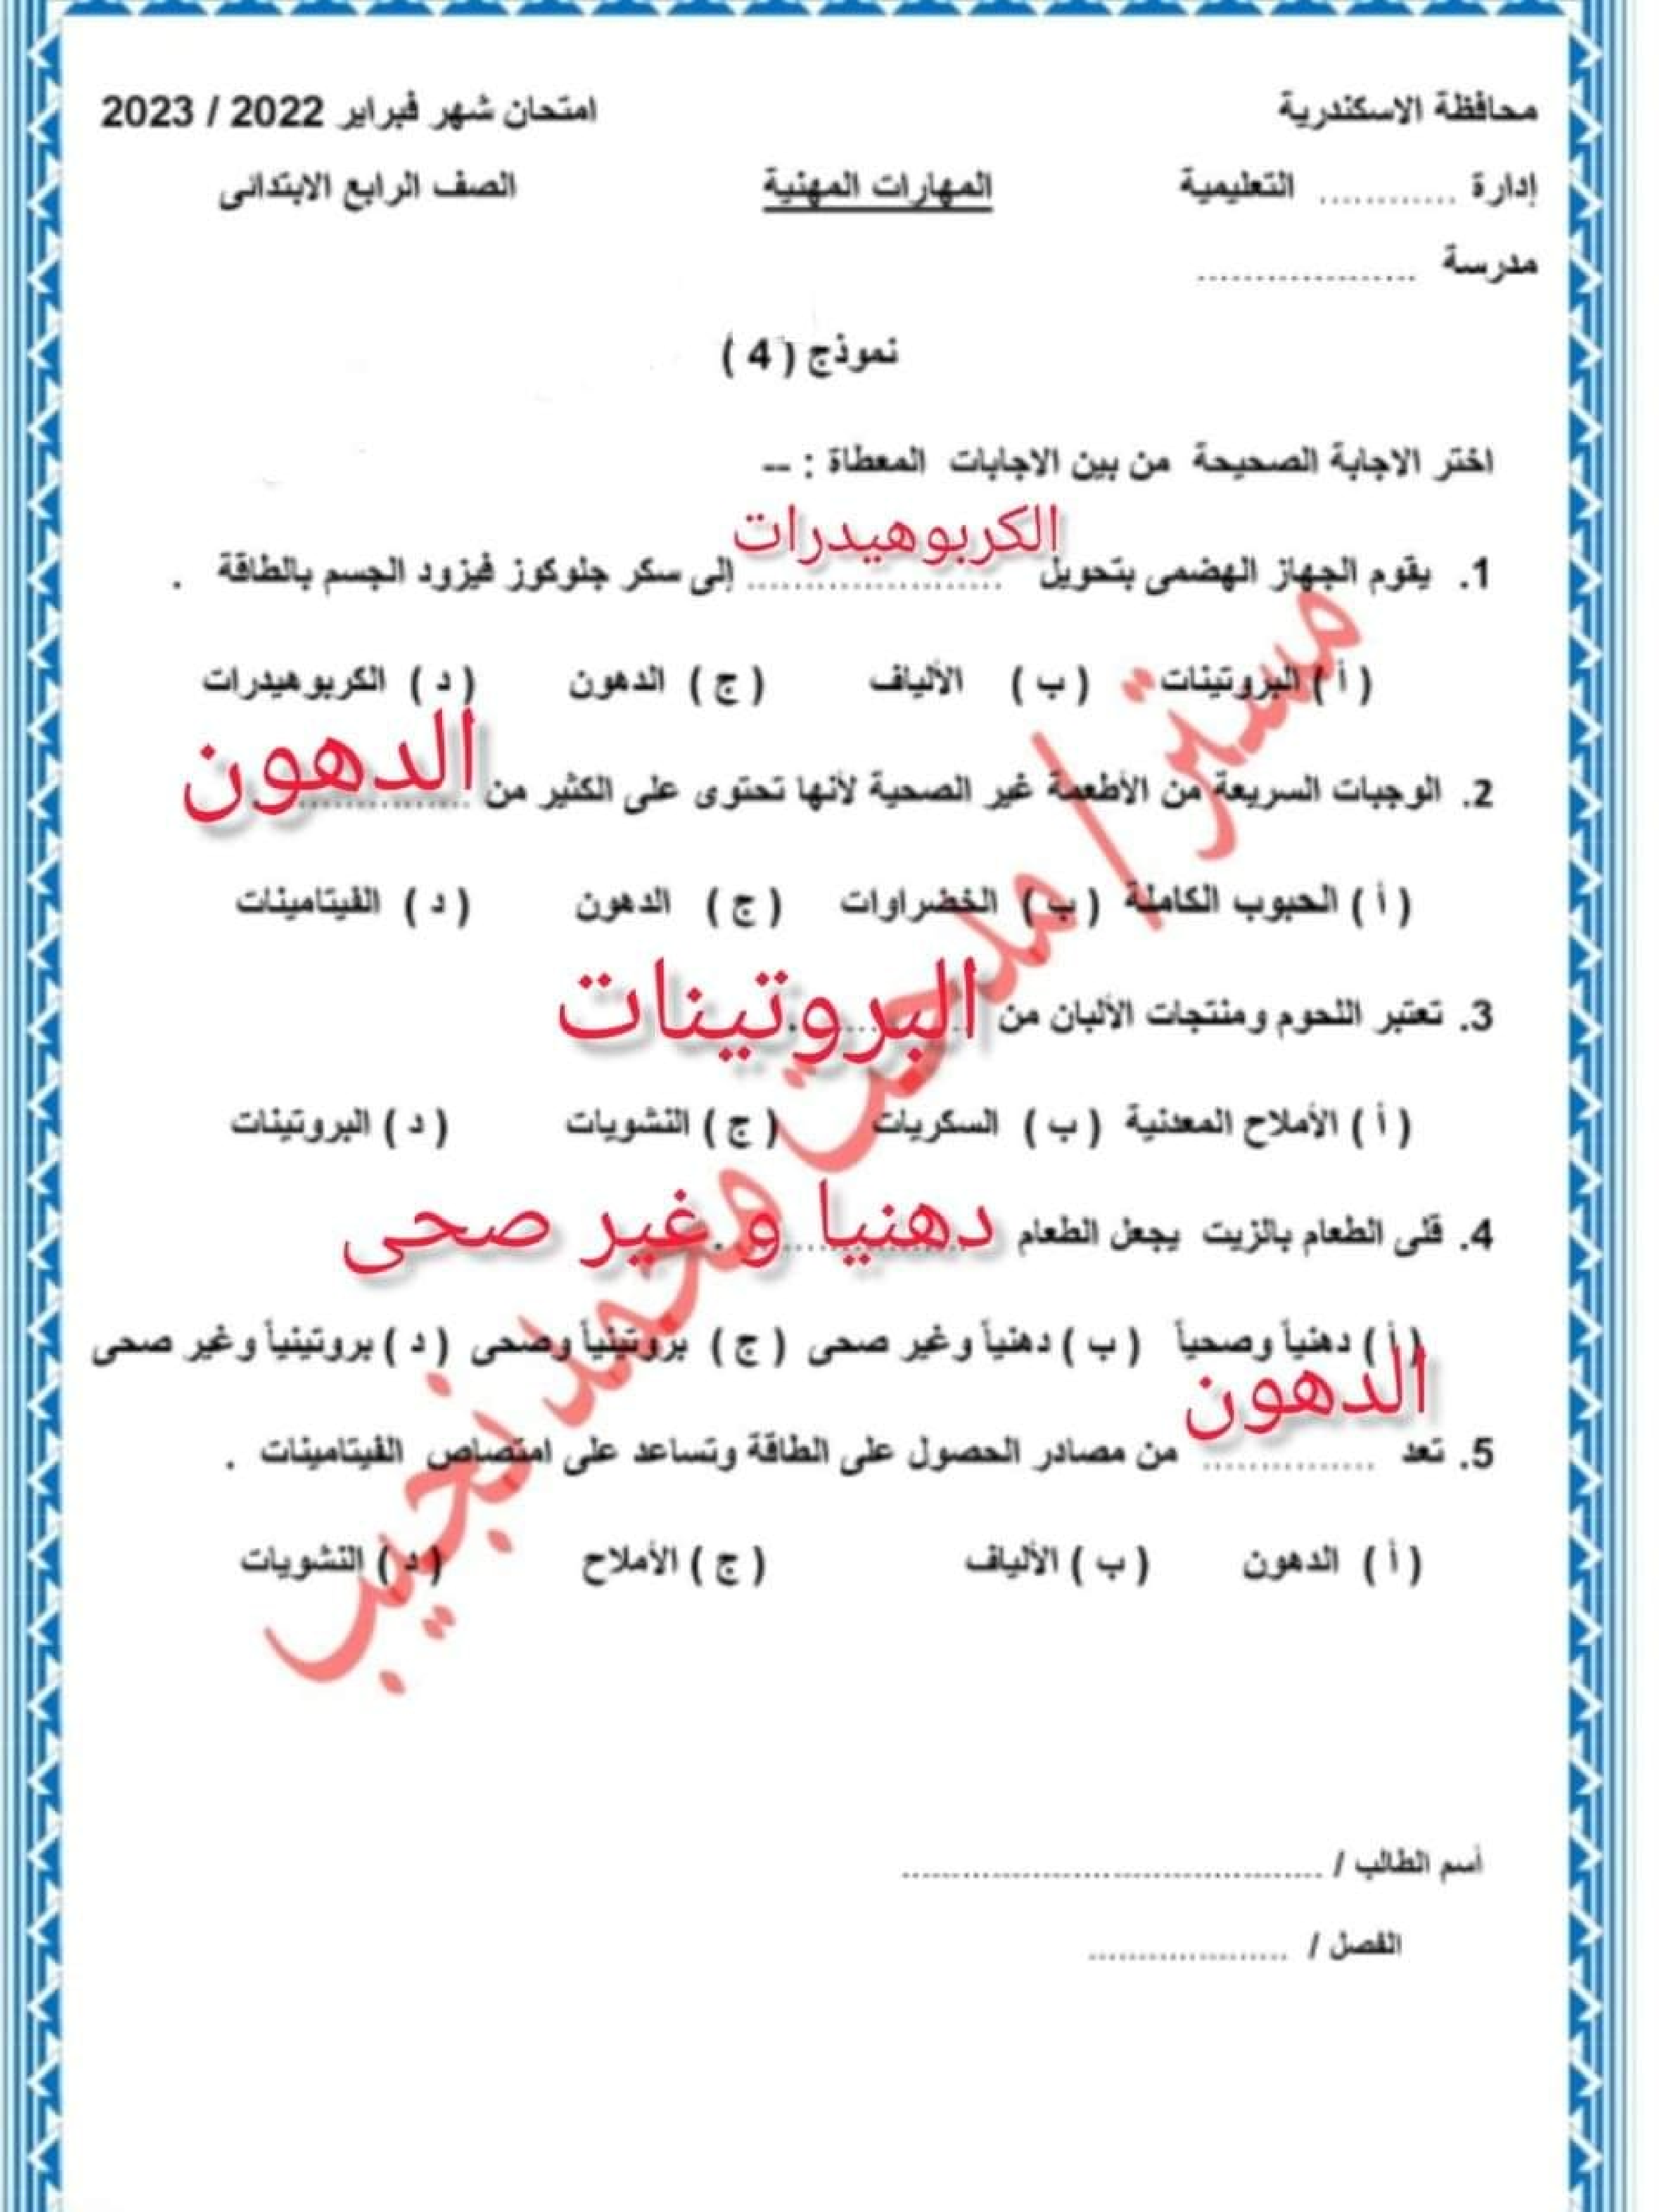 محافظة الاسكندرية امتحان شهر فبراير 2022 / 2023
إدارة ............ التعليمية المهارات المهنية الصف الرابع الابتدائى
مدرسة ...................
نموذج ( 4 )
اختر الاجابة الصحيحة من بين الاجابات المعطاة : --
الكربوهيدرات
1. يقوم الجهاز الهضمى بتحويل ...................... إلى سكر جلوكوز فيزود الجسم بالطاقة .
( أ ) البروتينات ( ب ) الألياف ( ج ) الدهون ( د ) الكربوهيدرات
2. الوجبات السريعة من الأطعمة غير الصحية لأنها تحتوى على الكثير من ................ الدهون
( أ ) الحبوب الكاملة ( ب ) الخضراوات ( ج ) الدهون ( د ) الفيتامينات
3. تعتبر اللحوم ومنتجات الألبان من ................ البروتينات
( أ ) الأملاح المعدنية ( ب ) السكريات ( ج ) النشويات ( د ) البروتينات
4. قلى الطعام بالزيت يجعل الطعام ................ دهنيا و غير صحى
( أ ) دهنياً وصحياً ( ب ) دهنياً وغير صحى ( ج ) بروتينياً وصحى ( د ) بروتينياً وغير صحى
الدهون
5. تعد ............... من مصادر الحصول على الطاقة وتساعد على امتصاص الفيتامينات .
( أ ) الدهون ( ب ) الألياف ( ج ) الأملاح ( د ) النشويات
مستر / مدحت محمد نجيب
أسم الطالب / ..........................................
الفصل / ....................